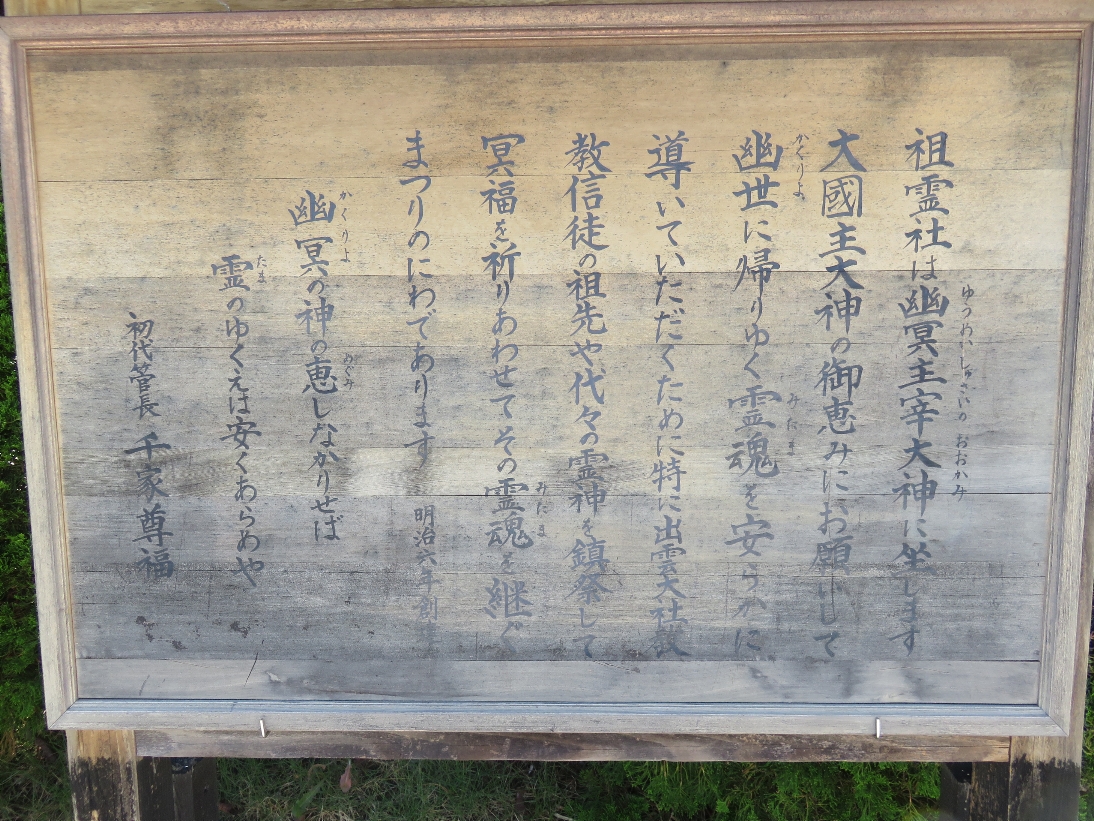 祖霊社は幽冥主宰大神に坐します
大國主大神の御恵みにお願いして
幽世に帰りゆく霊魂を安らかに
導いていただくために特に出雲大社教
教信徒の祖先や代々の霊神を鎮祭して
冥福を祈りあわせてその霊魂を継ぐ
まつりのにわであります 明治六年創
幽冥の神の恵しなかりせば
霊のゆくえは安くあらめや
初代管長 千家尊福